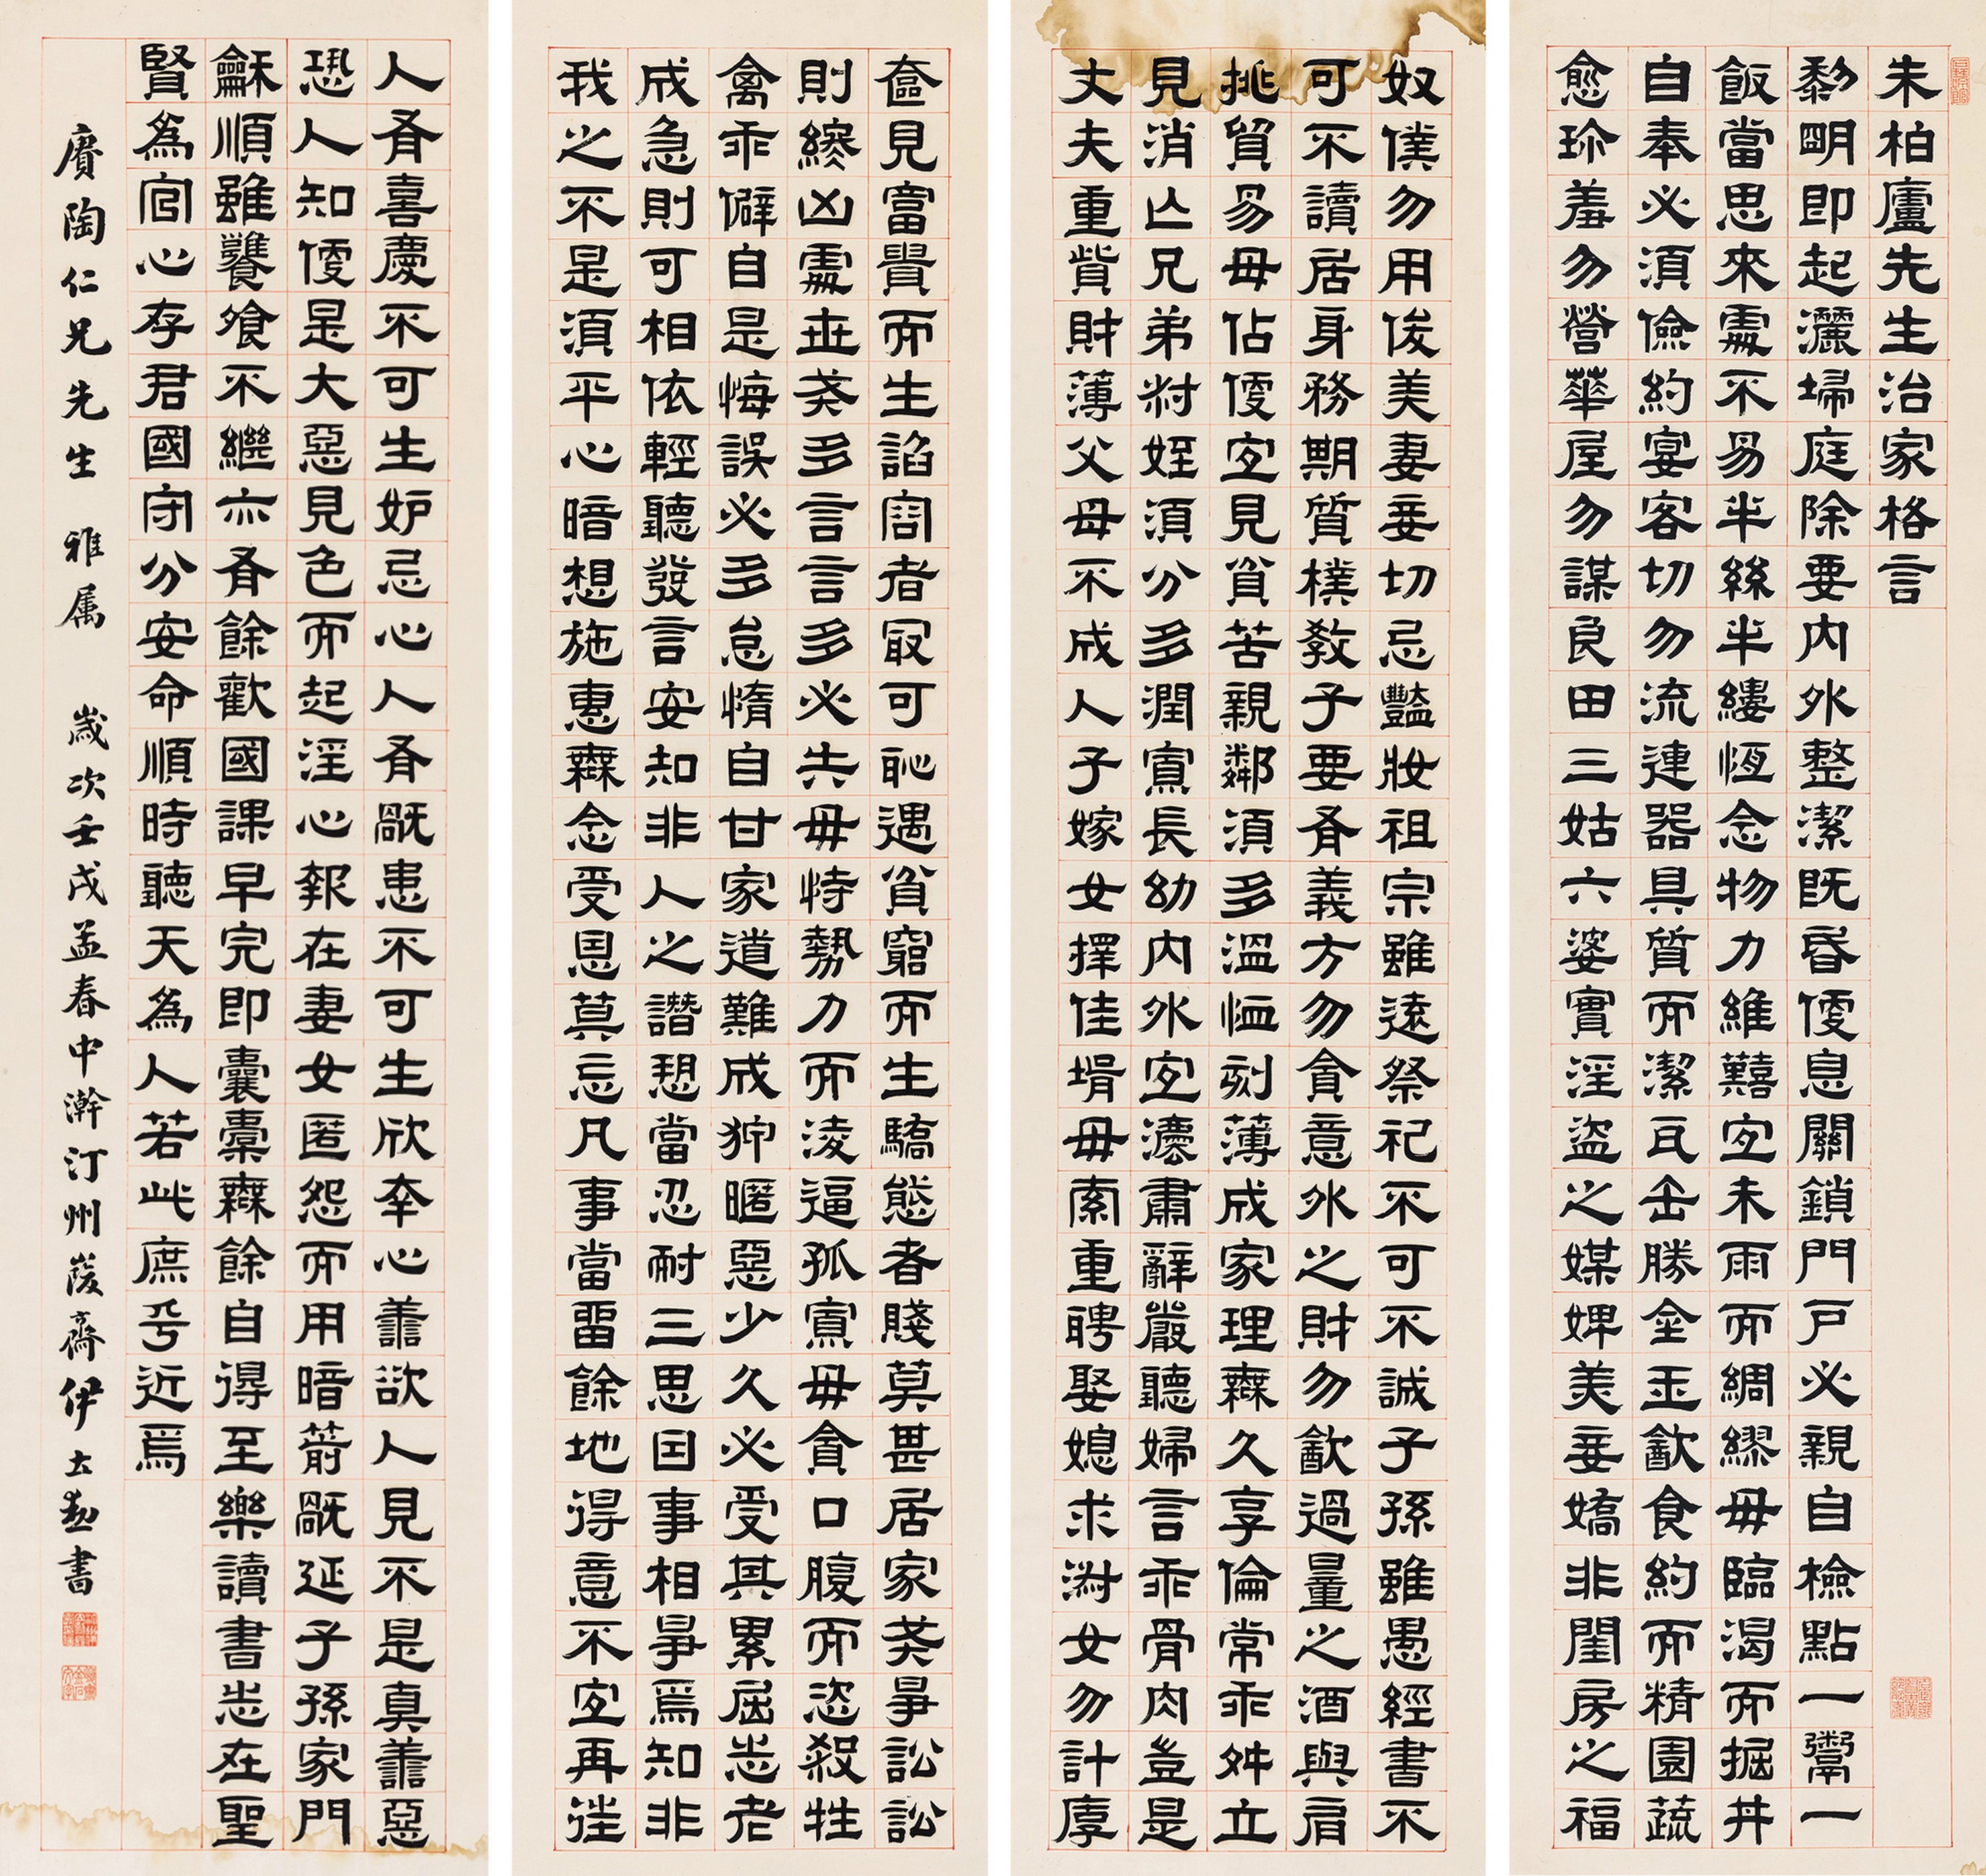 朱柏廬先生治家格言
黎明即起灑埽庭除要內外整潔既昏便息關鎖門戶必親自檢點一鬻一
飯當思來處不易半絲半縷恆念物力維囏宜未雨而綢繆毋臨渴而掘井
自奉必須儉約宴客切勿流連器具質而潔瓦缶勝金玉飲食約而精園蔬
愈珍羞勿營華屋勿謀良田三姑六婆實淫盜之媒婢美妾嬌非閨房之福
奴僕勿用俊美妻妾切忌豔妝祖宗雖遠祭祀不可不誠子孫雖愚經書不
可不讀居身務期質樸教子要有義方勿貪意外之財勿飲過量之酒與肩
挑貿易毋佔便宜見貧苦親鄰須多溫恤刻薄成家理無久享倫常乖舛立
見消亾兄弟叔姪須分多潤寡長幼內外宜灋肅辭嚴聽婦言乖骨肉豈是
丈夫重貲財薄父母不成人子嫁女擇佳壻毋索重聘娶媳求淑女勿計厚
奩見富貴而生諂容者最可恥遇貧窮而生驕態者賤莫甚居家戒爭訟訟
則終凶處世戒多言言多必失毋恃勢力而淩逼孤寡毋貪口腹而恣殺牲
禽乖僻自是悔誤必多怠惰自甘家道難成狎暱惡少久必受其累屈志老
成急則可相依輕聽發言安知非人之譖愬當忍耐三思因事相爭焉知非
我之不是須平心暗想施惠無念受恩莫忘凡事當畱餘地得意不宜再往
人有喜慶不可生妒忌心人有禍患不可生欣幸心善欲人見不是真善惡
恐人知便是大惡見色而起淫心報在妻女匿怨而用暗箭禍延子孫家門
龢順雖饔飧不繼亦有餘歡國課早完即囊橐無餘自得至樂讀書志在聖
賢為官心存君國守分安命順時聽天為人若此庶乎近焉
賡陶仁兄先生 雅属 歲次壬戌孟春中澣汀州峻齋伊立勳書